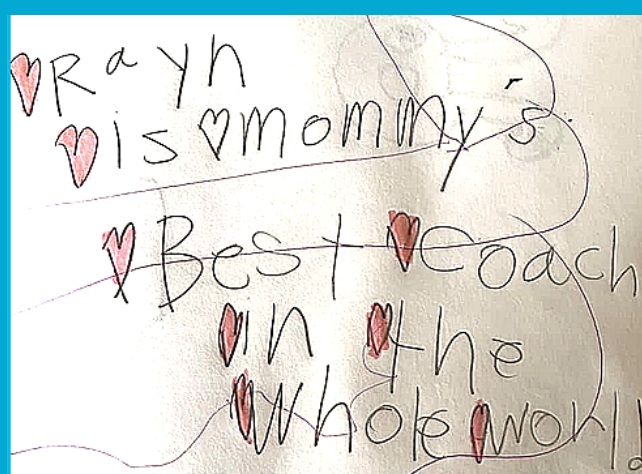 Rayn
is mommy's
Best coach
in the
whole worl